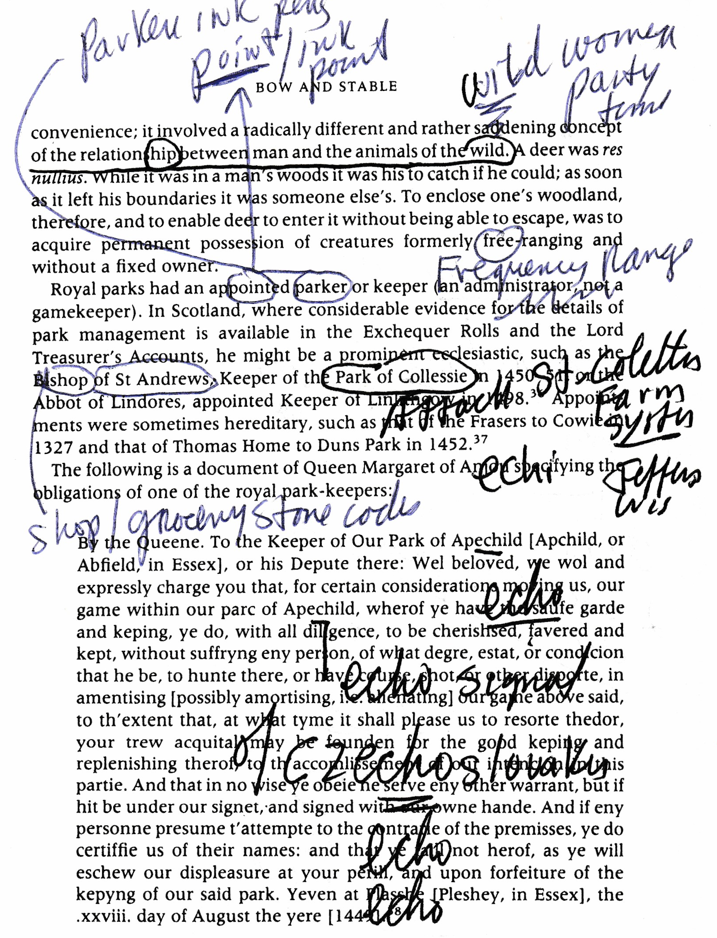 Parker ink pens
point / ink
point
wild women
party
time
BOW AND STABLE
convenience; it involved a radically different and rather saddening concept
of the relationship between man and the animals of the wild. A deer was res
nullius. While it was in a man's woods it was his to catch if he could; as soon
as it left his boundaries it was someone else's. To enclose one's woodland,
therefore, and to enable deer to enter it without being able to escape, was to
acquire permanent possession of creatures formerly free-ranging and
without a fixed owner.
Frequency Range
Royal parks had an appointed parker or keeper (an administrator, not a
gamekeeper). In Scotland, where considerable evidence for the details of
park management is available in the Exchequer Rolls and the Lord
Treasurer's Accounts, he might be a prominent ecclesiastic, such as the
Bishop of St Andrews, Keeper of the Park of Collessie in 1450, or the
Abbot of Lindores, appointed Keeper of Linlithgow in 1498. Appoint-
ments were sometimes hereditary, such as that of the Frasers to Cowie in
1327 and that of Thomas Home to Duns Park in 1452.37
Attack St. Colettus
Farm
System
echi
Jeffers
Wis
The following is a document of Queen Margaret of Anjou specifying the
obligations of one of the royal park-keepers:
shop / grocery store codes
By the Queene. To the Keeper of Our Park of Apechild [Apchild, or
Abfield, in Essex], or his Depute there: Wel beloved, we wol and
expressly charge you that, for certain considerations moving us, our
game within our parc of Apechild, wherof ye have the saufe garde
and keping, ye do, with all diligence, to be cherishsed, favered and
kept, without suffryng eny person, of what degre, estat, or condicion
that he be, to hunte there, or have course, shot, or other disporte, in
amentising [possibly amortising, i.e. alienating] our game above said,
to th'extent that, at what tyme it shall please us to resorte thedor,
your trew acquital may be founden for the good keping and
replenishing therof, to th'accomlissement of our intencion in this
partie. And that in no wise ye obeie ne serve eny other warrant, but if
hit be under our signet, and signed with our owne hande. And if eny
personne presume t'attempte to the contrarie of the premisses, ye do
certiffie us of their names: and that ye fail not herof, as ye will
eschew our displeasure at your perill, and upon forfeiture of the
kepyng of our said park. Yeven at Plasshe [Pleshey, in Essex], the
.xxviii. day of August the yere [144
echo
echo signal
of Czechoslovakia
echo
echo